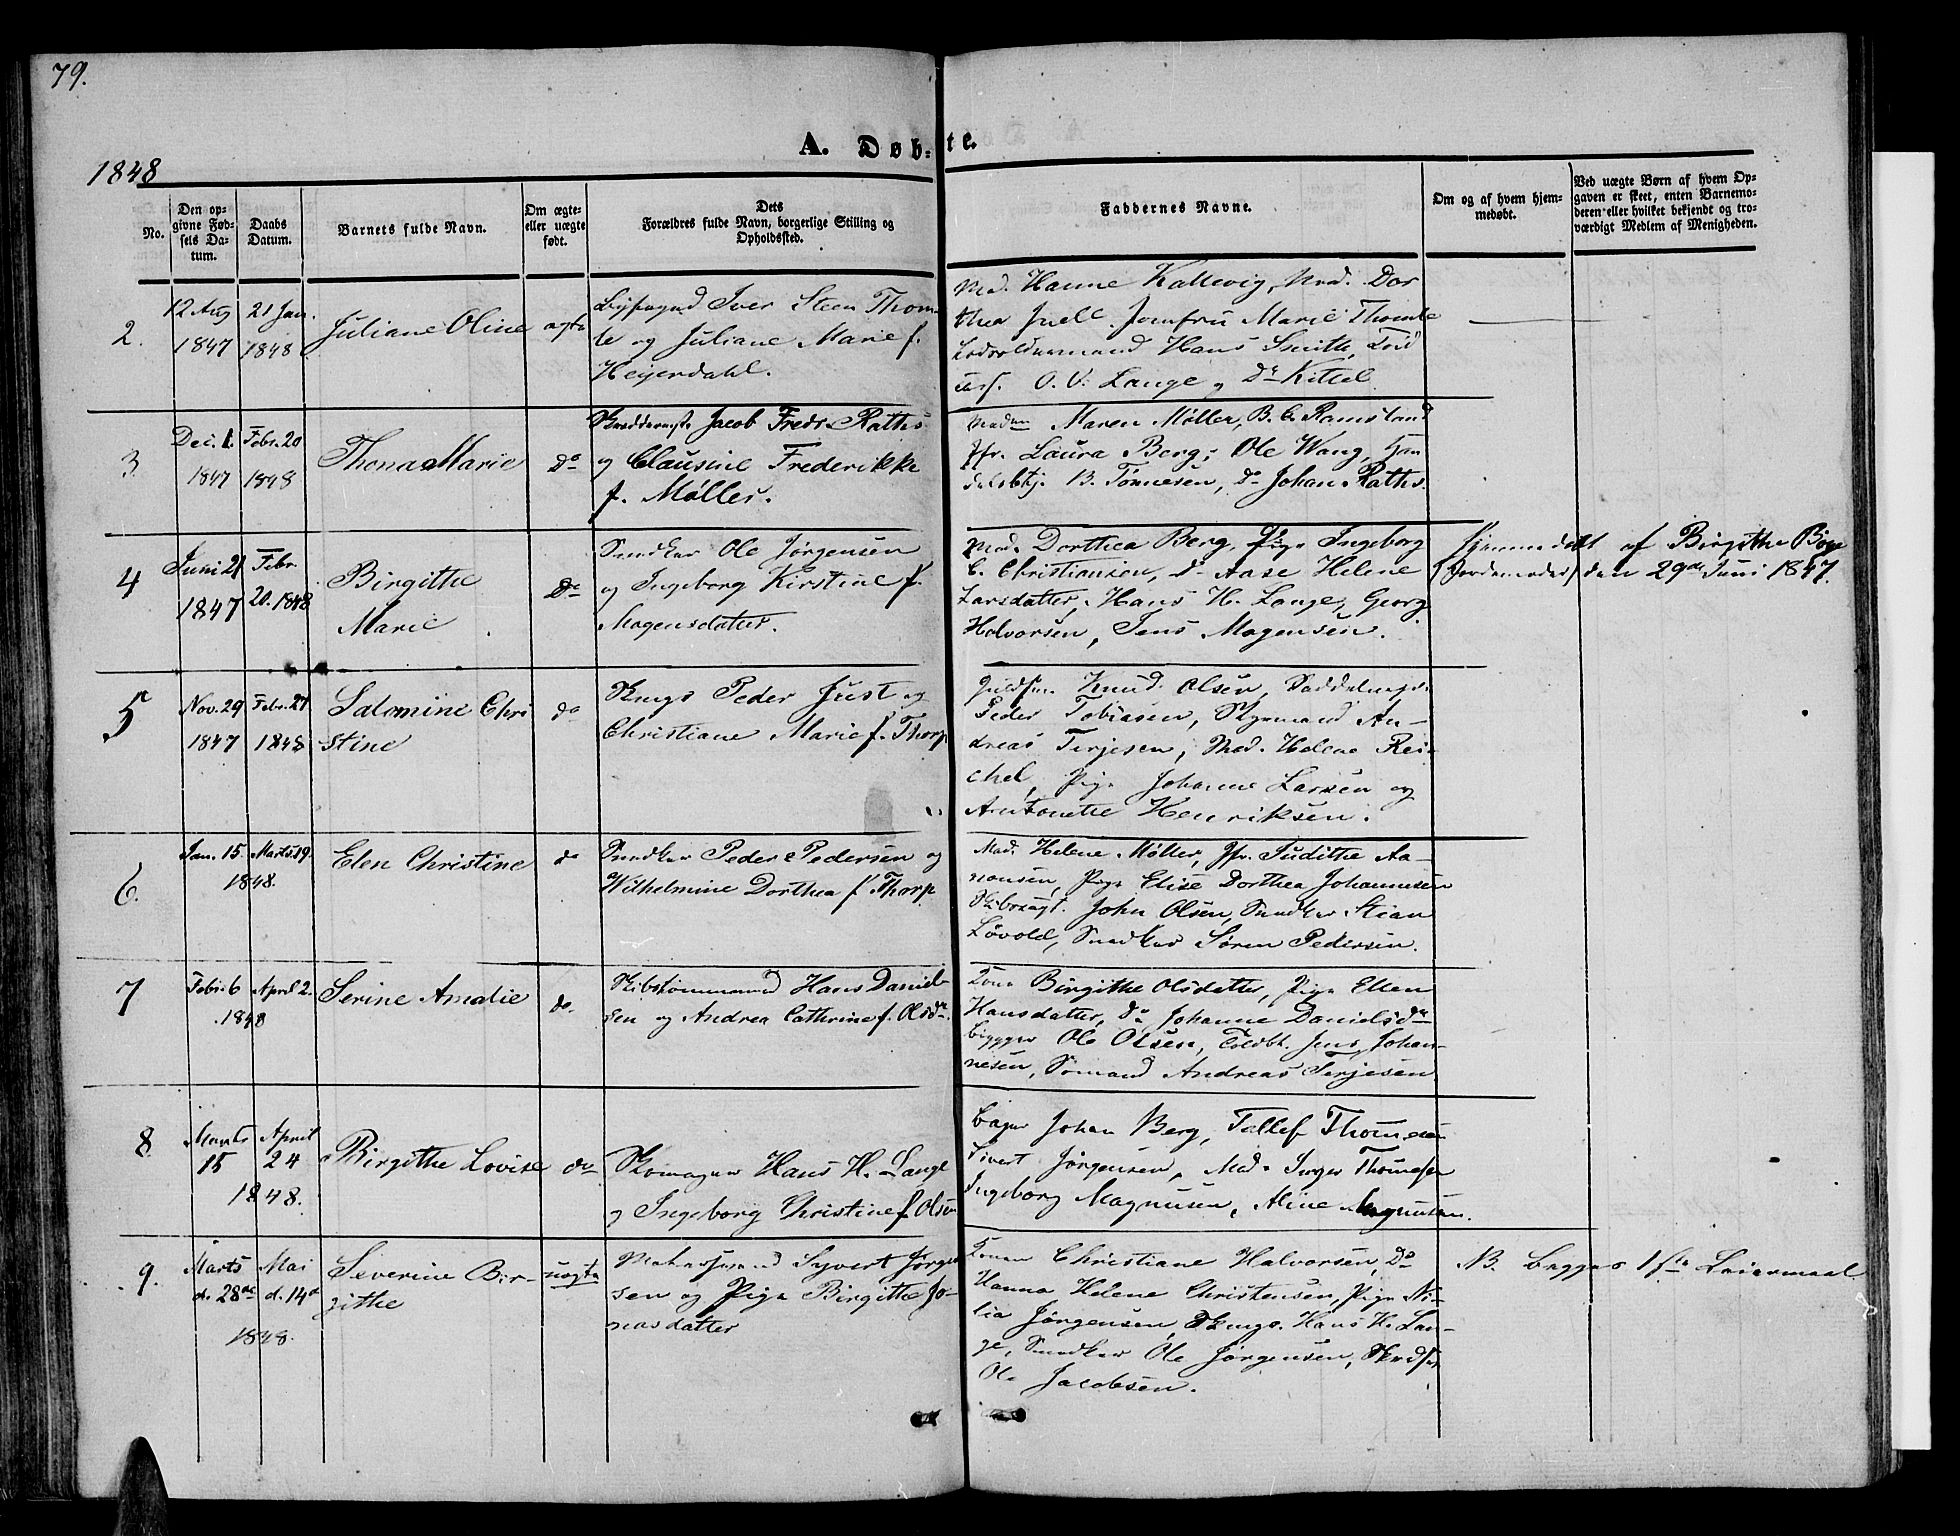 79.
A. Døb-te.
1848
No.
Den op-
givne Fød-
sels Da-
tum.
Daabs
Datum.
Barnets fulde Navn.
Om ægte-
eller uægte
født.
Dets
Forældres fulde Navn, borgerlige Stilling og
Opholdssted.
Faddernes Navne.
Om og af hvem hjem-
medøbt.
Ved uægte Børn af hvem Op-
gaven er skeet, enten Barnemo-
deren eller hvilket bekjendt og tro-
værdigt Medlem af Menigheden.
2.
12 Aug
1847
21 Jan.
1848
Juliane Oline
ægte
Byfogud Iver Steen Thom-
le og Juliane Marie f.
Heyerdahl.
Mad. Hanne Kallevig, Mad. Dor
thea Juell. Jomfru Marie Thomle
Lodsoldermand Hans Smith, Told
O. V. Lange og Dr Kittel.
3.
Dec. 1.
1847
Febr. 20
1848
Thona Marie
Do
Jacob Fredr. Raths
og Clausine Frederikke
f. Møller.
Madm Maren Møller, B. C. Ramsland
Jfr. Laura Berg, Ole Wang, Han
delsbtj. B. Tønnesen, do Johan Raths.
4
Juni 21
1847
Febr
20. 1848
Birgithe
Marie
Do
Snedker Ole Jørgensen
og Ingeborg Kirstine f.
Mogensdatter.
Mad. Dorthea Berg, Pige Ingeborg
C. Christiansen, do Aase Helene
Larsdatter, Hans H. Lange, Georg
Halvorsen, Jens Mogensen.
Hjemmedøbt af Birgithe Boye
(Jordemoder) den 29de Juni 1847.
5
Nov. 29
1847
Febr. 27
1848
Salomine Chri
stine
do
Skmgr Peder Just og
Christiane Marie f. Thorp
Knud Olsen, Saddelmgr.
Peder Tobiasen, Styrmand An-
dreas Terjesen, Mad. Helene Rei-
chel, Pige Johanne Larsen og
Antonette Henriksen.
6.
Jan. 15.
Marts 19.
1848.
Elen Christine
do
Snedker Peder Pedersen og
Wilhelmine Dorthea f. Thorp
Mad. Helene Møller, Jfr. Judithe Aa-
nonsen, Pige Elise Dorthea Johannesen
John Olsen, Snedker Stian
Løvold, Snedker Søren Pedersen.
7
Febr. 6
April 2.
1848
Serine Amalie
do.
Skibstømmermand Hans Daniel-
sen og Andrea Cathrine f. Olsdtr.
Kone Birgithe Olsdatter, Pige Ellen
Hansdatter, do Johanne Danielsdtr
Brygger Ole Olsen, Toldbt. Jens Johan-
nesen, Sømand Andreas Terjesen
8.
Marts
15
April
24
1848.
Birgithe Lovise
do
Skomager Hans H. Lange
og Ingeborg Christine f. Olsen
Bager Johan Berg, Tallef Thomesen
Sivert Jørgensen, Mad. Inger Thomesen
Ingeborg Magnusen, Aline Magnusen.
9.
Marts
d. 28de
Mai
d. 14d
1848.
Severine Bir-
githe
uægte
Matros Syvert Jørgen
sen og Pige Birgithe Jo-
nasdatter
Konen Christiane Halvorsen, Do
Hanna Helene Christensen, Pige Ni-
lia Jørgensen, Skmgr. Hans H. Lan-
ge, Snedker Ole Jørgensen,
Ole Jacobsen.
NB. begges 1ste Leiermaal